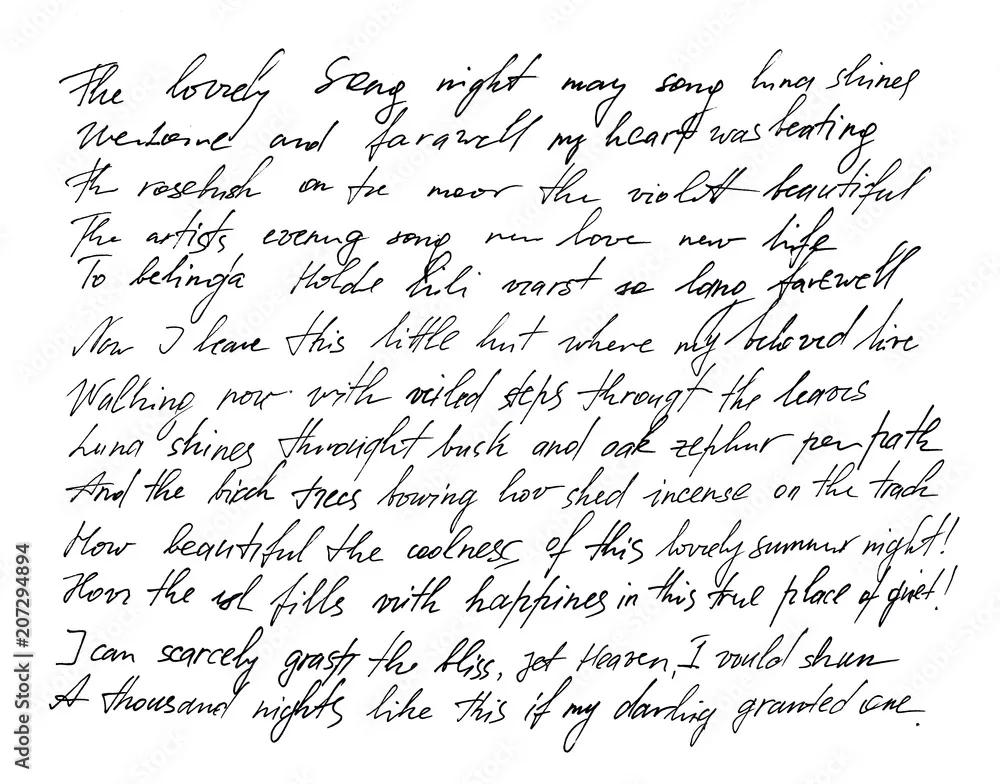 The lovely song night may song luna shines
Welcome and farawell my heart was beating
Th rosebush on the moor the violett beautiful
The artists evening song new love new life
To belinda Holde Lili warst so long farewell
Now I leave this little hut where my beloved live
Walking now with veiled steps througt the leavs
Luna shines throught bush and oak zephur per path
And the birch trees bowing how shed incense on the track
How beautiful the coolness of this lovely summer night!
How the fills with happines in this true place of quiet!
I can scarcely grasp the bliss, yet Heaven, I would shun
A thousand nights like this if my darling granted one.
Adobe Stock | #207294894